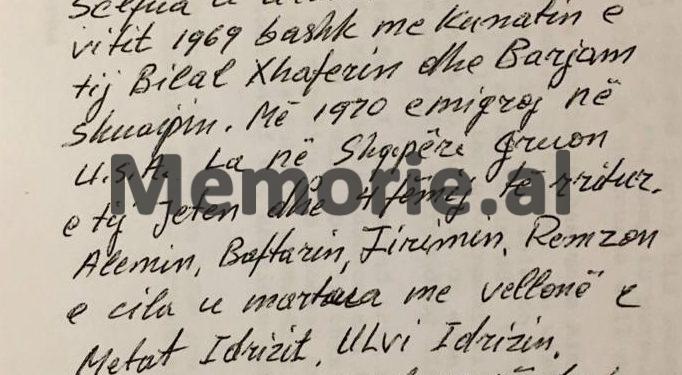 vitit 1969 bashk me Kunatin e
tij Bilal Xhaferin dhe Barjam
Shuaipin. Më 1970 emigroj në
U.S.A. La në Shqipëri gruan
e tij Jeten dhe 4 fëmij të rritur.
Alemin, Baftarin, Jirimin, Remzon
e cila u martua me vëllonë e
Metat Idrizit, ULvi Idrizin.
Memorie.al